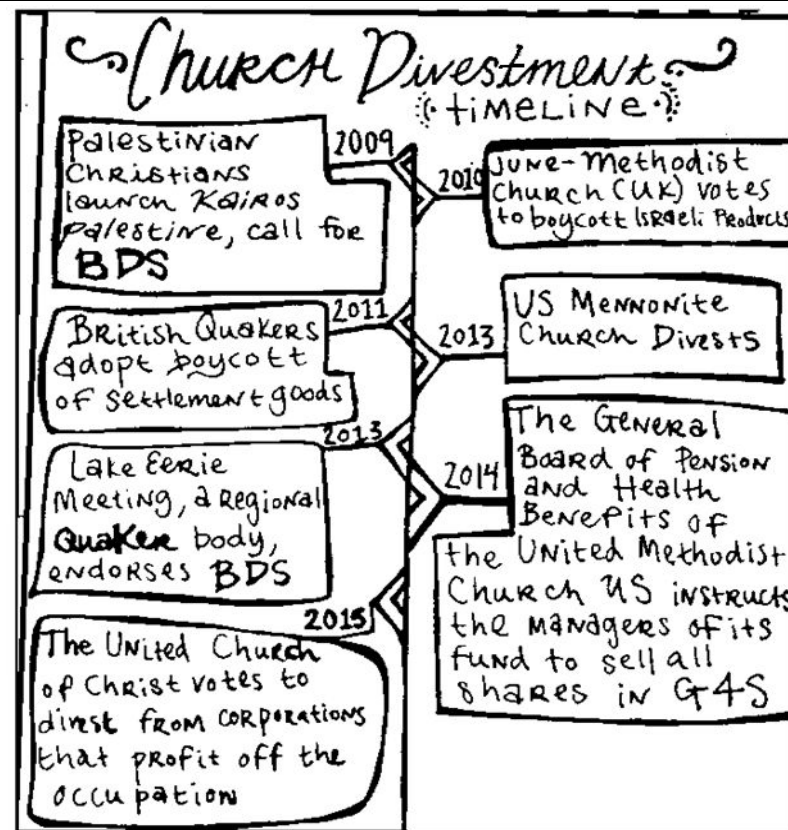 Church Divestment
timeline
2009
Palestinian
Christians
launch Kairos
Palestine, call for
BDS
2010
June-Methodist
Church (UK) votes
to boycott Israeli Products
2011
British Quakers
adopt boycott
of settlement goods
2013
US Mennonite
Church Divests
2013
Lake Eerie
Meeting, a regional
Quaker body,
endorses BDS
2014
The General
Board of Pension
and Health
Benefits of
the United Methodist
Church US instructs
the managers of its
fund to sell all
shares in G4S
2015
The United Church
of Christ votes to
divest from corporations
that profit off the
occupation